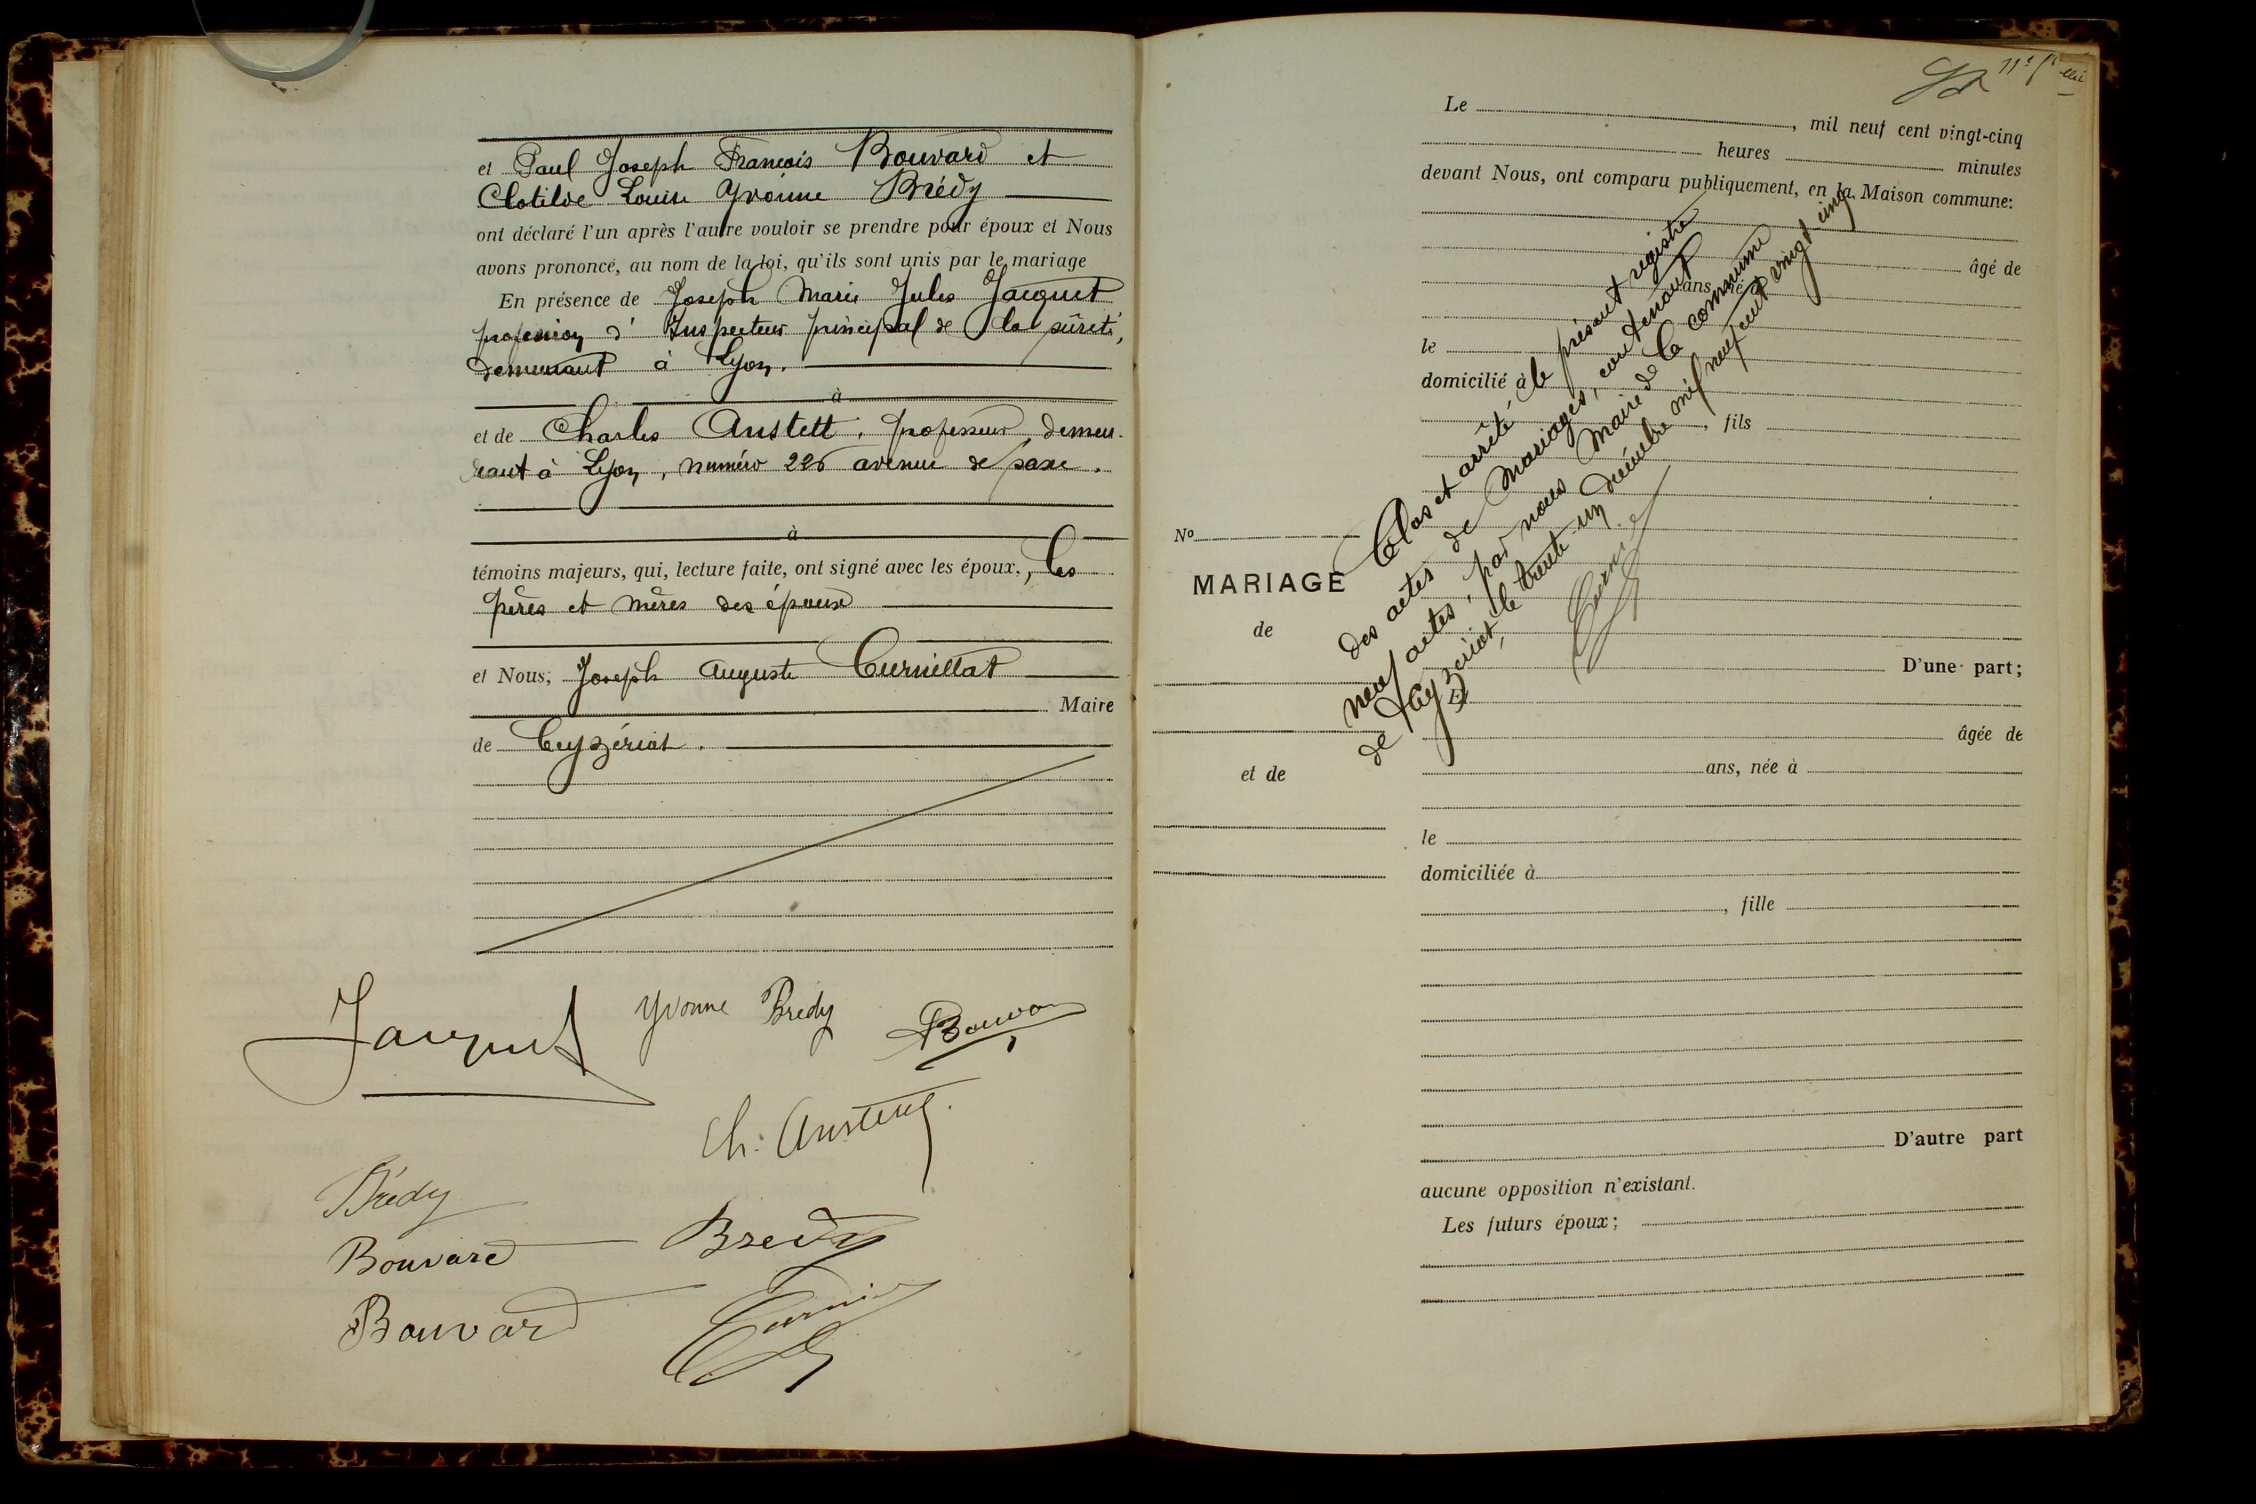 et Paul Joseph François Bouvard et
Clotilde Louise Yvonne Brédy
ont déclaré l'un après l'autre vouloir se prendre pour époux et Nous
avons prononcé, au nom de la loi, qu'ils sont unis par le mariage
En présence de Joseph Marie Jules Jacquet
profession d' Inspecteur principal de la sûreté,
demeurant à Lyon.
à
et de Charles Austett, professeur, demeu-
rant à Lyon, numéro 226 avenue de saxe.
à
témoins majeurs, qui, lecture faite, ont signé avec les époux, les
pères et mères des époux
et Nous; Joseph Auguste Curnillat
Maire
de Ceyzériat.
Jacquet
Yvonne Brédy
Bouvard
Ch. Austett
Brédy
Bouvard
Bredy
Bouvard
11e
Le , mil neuf cent vingt-cinq
heures minutes
devant Nous, ont comparu publiquement, en la Maison commune:
âgé de
ans, né à
le
domicilié à
, fils
No
MARIAGE
de
D'une part;
Et
âgée de
et de
ans, née à
le
domiciliée à
, fille
D'autre part
aucune opposition n'existant.
Les futurs époux;
Clos et arrêté le présent registre
des actes de Mariages, contenant
neuf actes, par nous Maire de la commune
de Ceyzériat, le trente-un décembre mil neuf cent vingt-cinq